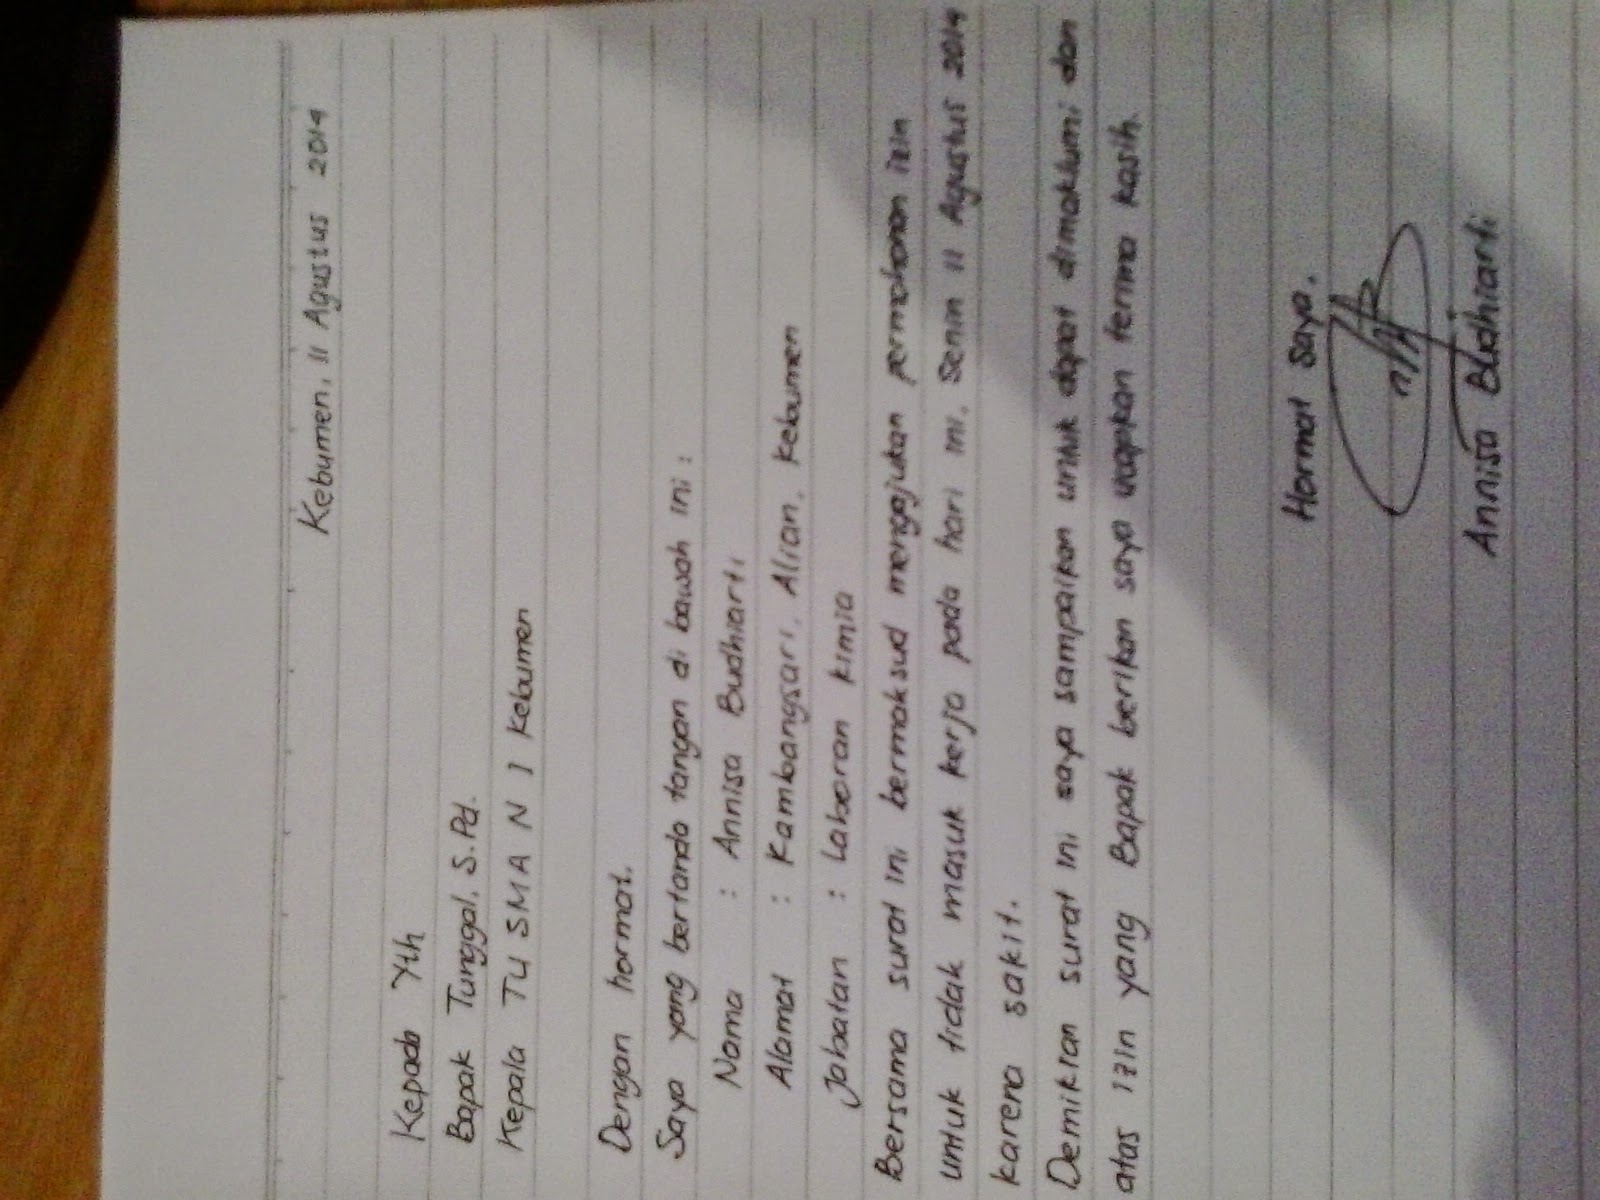 Kebumen, 11 Agustus 2014
Kepada Yth
Bapak Tunggal, S.Pd.
Kepala TU SMA N 1 Kebumen
Dengan hormat.
Saya yang bertanda tangan di bawah ini :
Nama : Annisa Budhiarti
Alamat : Kambangsari, Alian, Kebumen
Jabatan : Laboran kimia
Bersama surat ini bermaksud mengajukan permohonan izin
untuk tidak masuk kerja pada hari ini, Senin 11 Agustus 2014
karena sakit.
Demikian surat ini saya sampaikan untuk dapat dimaklumi dan
atas izin yang Bapak berikan saya ucapkan terima kasih.
Hormat Saya,
Annisa Budhiarti